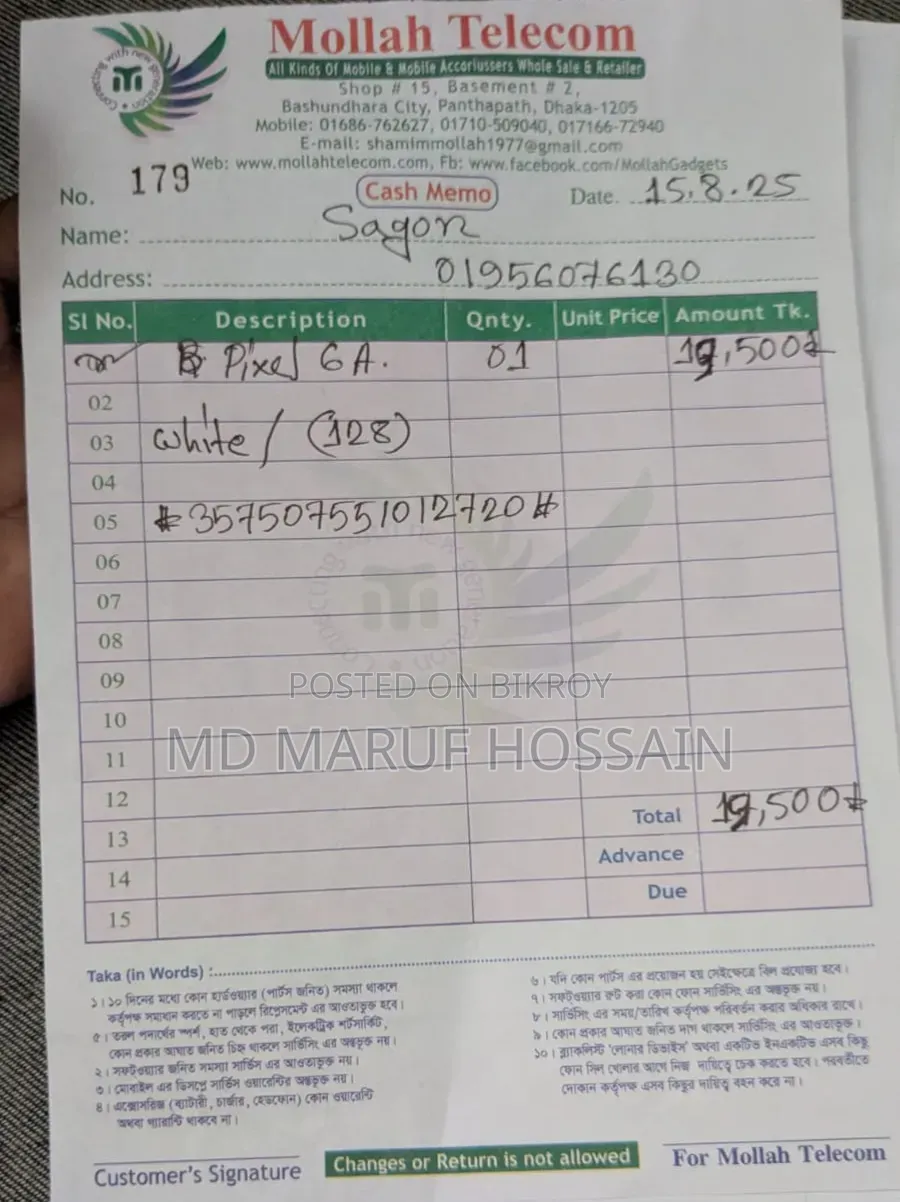 Connecting with new generation
Mollah Telecom
All Kinds Of Mobile & Mobile Accoriussers Whole Sale & Retailer
Shop # 15, Basement # 2,
Bashundhara City, Panthapath, Dhaka-1205
Mobile: 01686-762627, 01710-509040, 017166-72940
E-mail: shamimmollah1977@gmail.com
Web: www.mollahtelecom.com, Fb: www.facebook.com/MollahGadgets
No. 179 Cash Memo Date. 15.8.25
Name: Sagor
Address: 01956076130
Sl No. Description Qnty. Unit Price Amount Tk.
Pixel 6A. 01 19,500
02
03 white / (128)
04
05 #357507551012720#
06
07
08
09
POSTED ON BIKROY
10
MD MARUF HOSSAIN
11
12
Total 19,500
13
Advance
14
Due
15
Taka (in Words) :
১। ১০ দিনের মধ্যে কোন হার্ডওয়্যার (পার্টস জনিত) সমস্যা থাকলে
কর্তৃপক্ষ সমাধান করতে না পাড়লে রিপ্লেসমেন্ট এর আওতাভুক্ত হবে।
৫। তরল পদার্থের স্পর্শ, হাত থেকে পরা, ইলেকট্রিক শর্টসার্কিট,
কোন প্রকার আঘাত জনিত চিহ্ন থাকলে সার্ভিসিং এর অন্তর্ভুক্ত নয়।
২। সফটওয়্যার জনিত সমস্যা সার্ভিস এর আওতাভুক্ত নয়।
৩। মোবাইল এর ডিসপ্লে সার্ভিস ওয়ারেন্টির অন্তর্ভুক্ত নয়।
৪। এক্সেসরিজ (ব্যাটারী, চার্জার, হেডফোন) কোন ওয়ারেন্টি
অথবা গ্যারান্টি থাকবে না।
৬। যদি কোন পার্টস এর প্রয়োজন হয় সেইক্ষেত্রে বিল প্রযোজ্য হবে।
৭। সফটওয়্যার রুট করা কোন ফোন সার্ভিসিং এর অন্তর্ভুক্ত নয়।
৮। সার্ভিসিং এর সময়/তারিখ কর্তৃপক্ষ পরিবর্তন করার অধিকার রাখে।
৯। কোন প্রকার আঘাত জনিত দাগ থাকলে সার্ভিসিং এর আওতাভুক্ত।
১০। ব্ল্যাকলিস্ট 'লোনার ডিভাইস' অথবা একটিভ ইনএকটিভ এসব কিছু
ফোন সিল খোলার আগে নিজ দায়িত্বে চেক করতে হবে। পরবর্তীতে
দোকান কর্তৃপক্ষ এসব কিছুর দায়িত্ব বহন করে না।
Customer's Signature Changes or Return is not allowed For Mollah Telecom